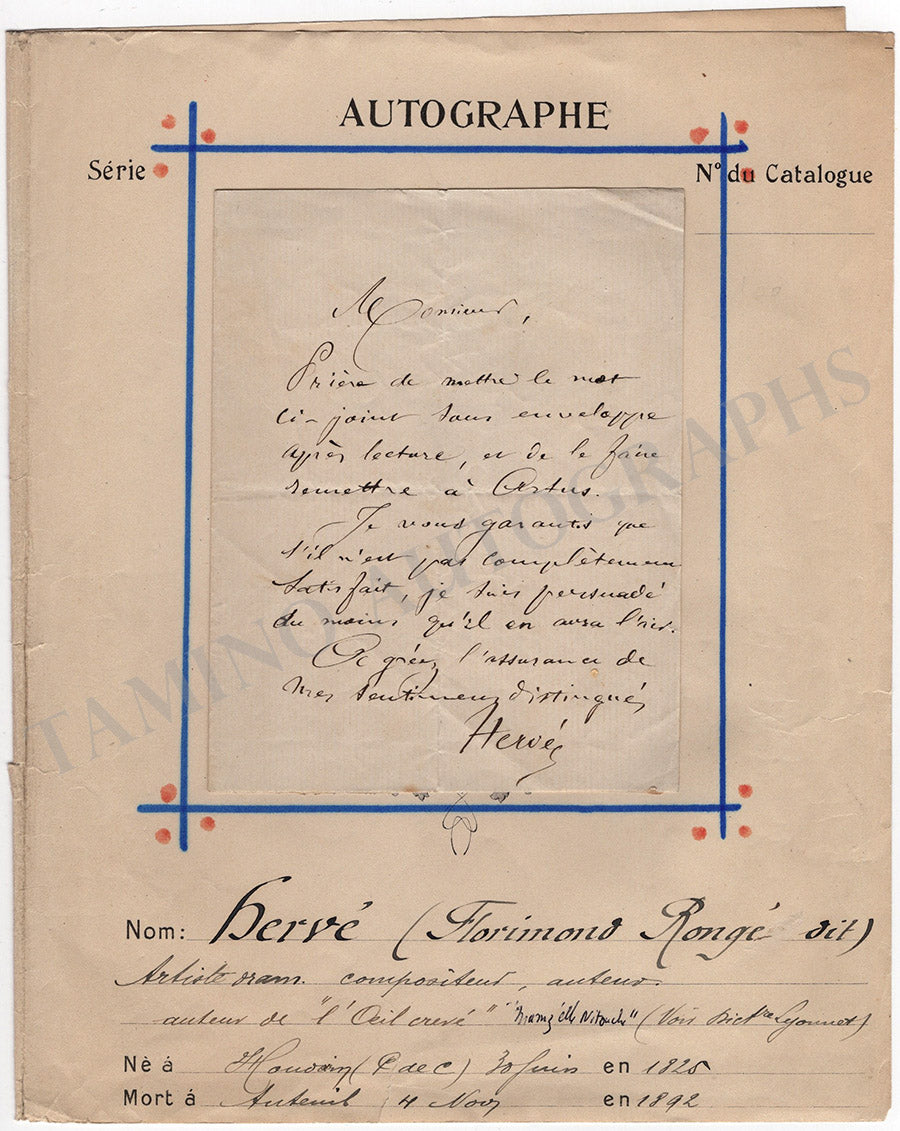 AUTOGRAPHE
Série
No du Catalogue
Monsieur,
Prière de mettre le mot
ci-joint sous enveloppe
après lecture, et de le faire
remettre à Artus.
Je vous garantis que
s'il n'est pas complètement
satisfait, je suis persuadé
du moins qu'il en aura l'air.
Agréez l'assurance de
mes sentimens distingués
Hervé
TAMINO AUTOGRAPHS
Nom: Hervé (Florimond Rongé dit)
Artiste dram. compositeur, auteur
auteur de "l'Œil crevé" "Mamzelle Nitouche" (Voir Dictre Lyonnet)
Nè á Houdain (P de C) 30 Juin en 1825
Mort á Auteuil 4 Nov en 1892